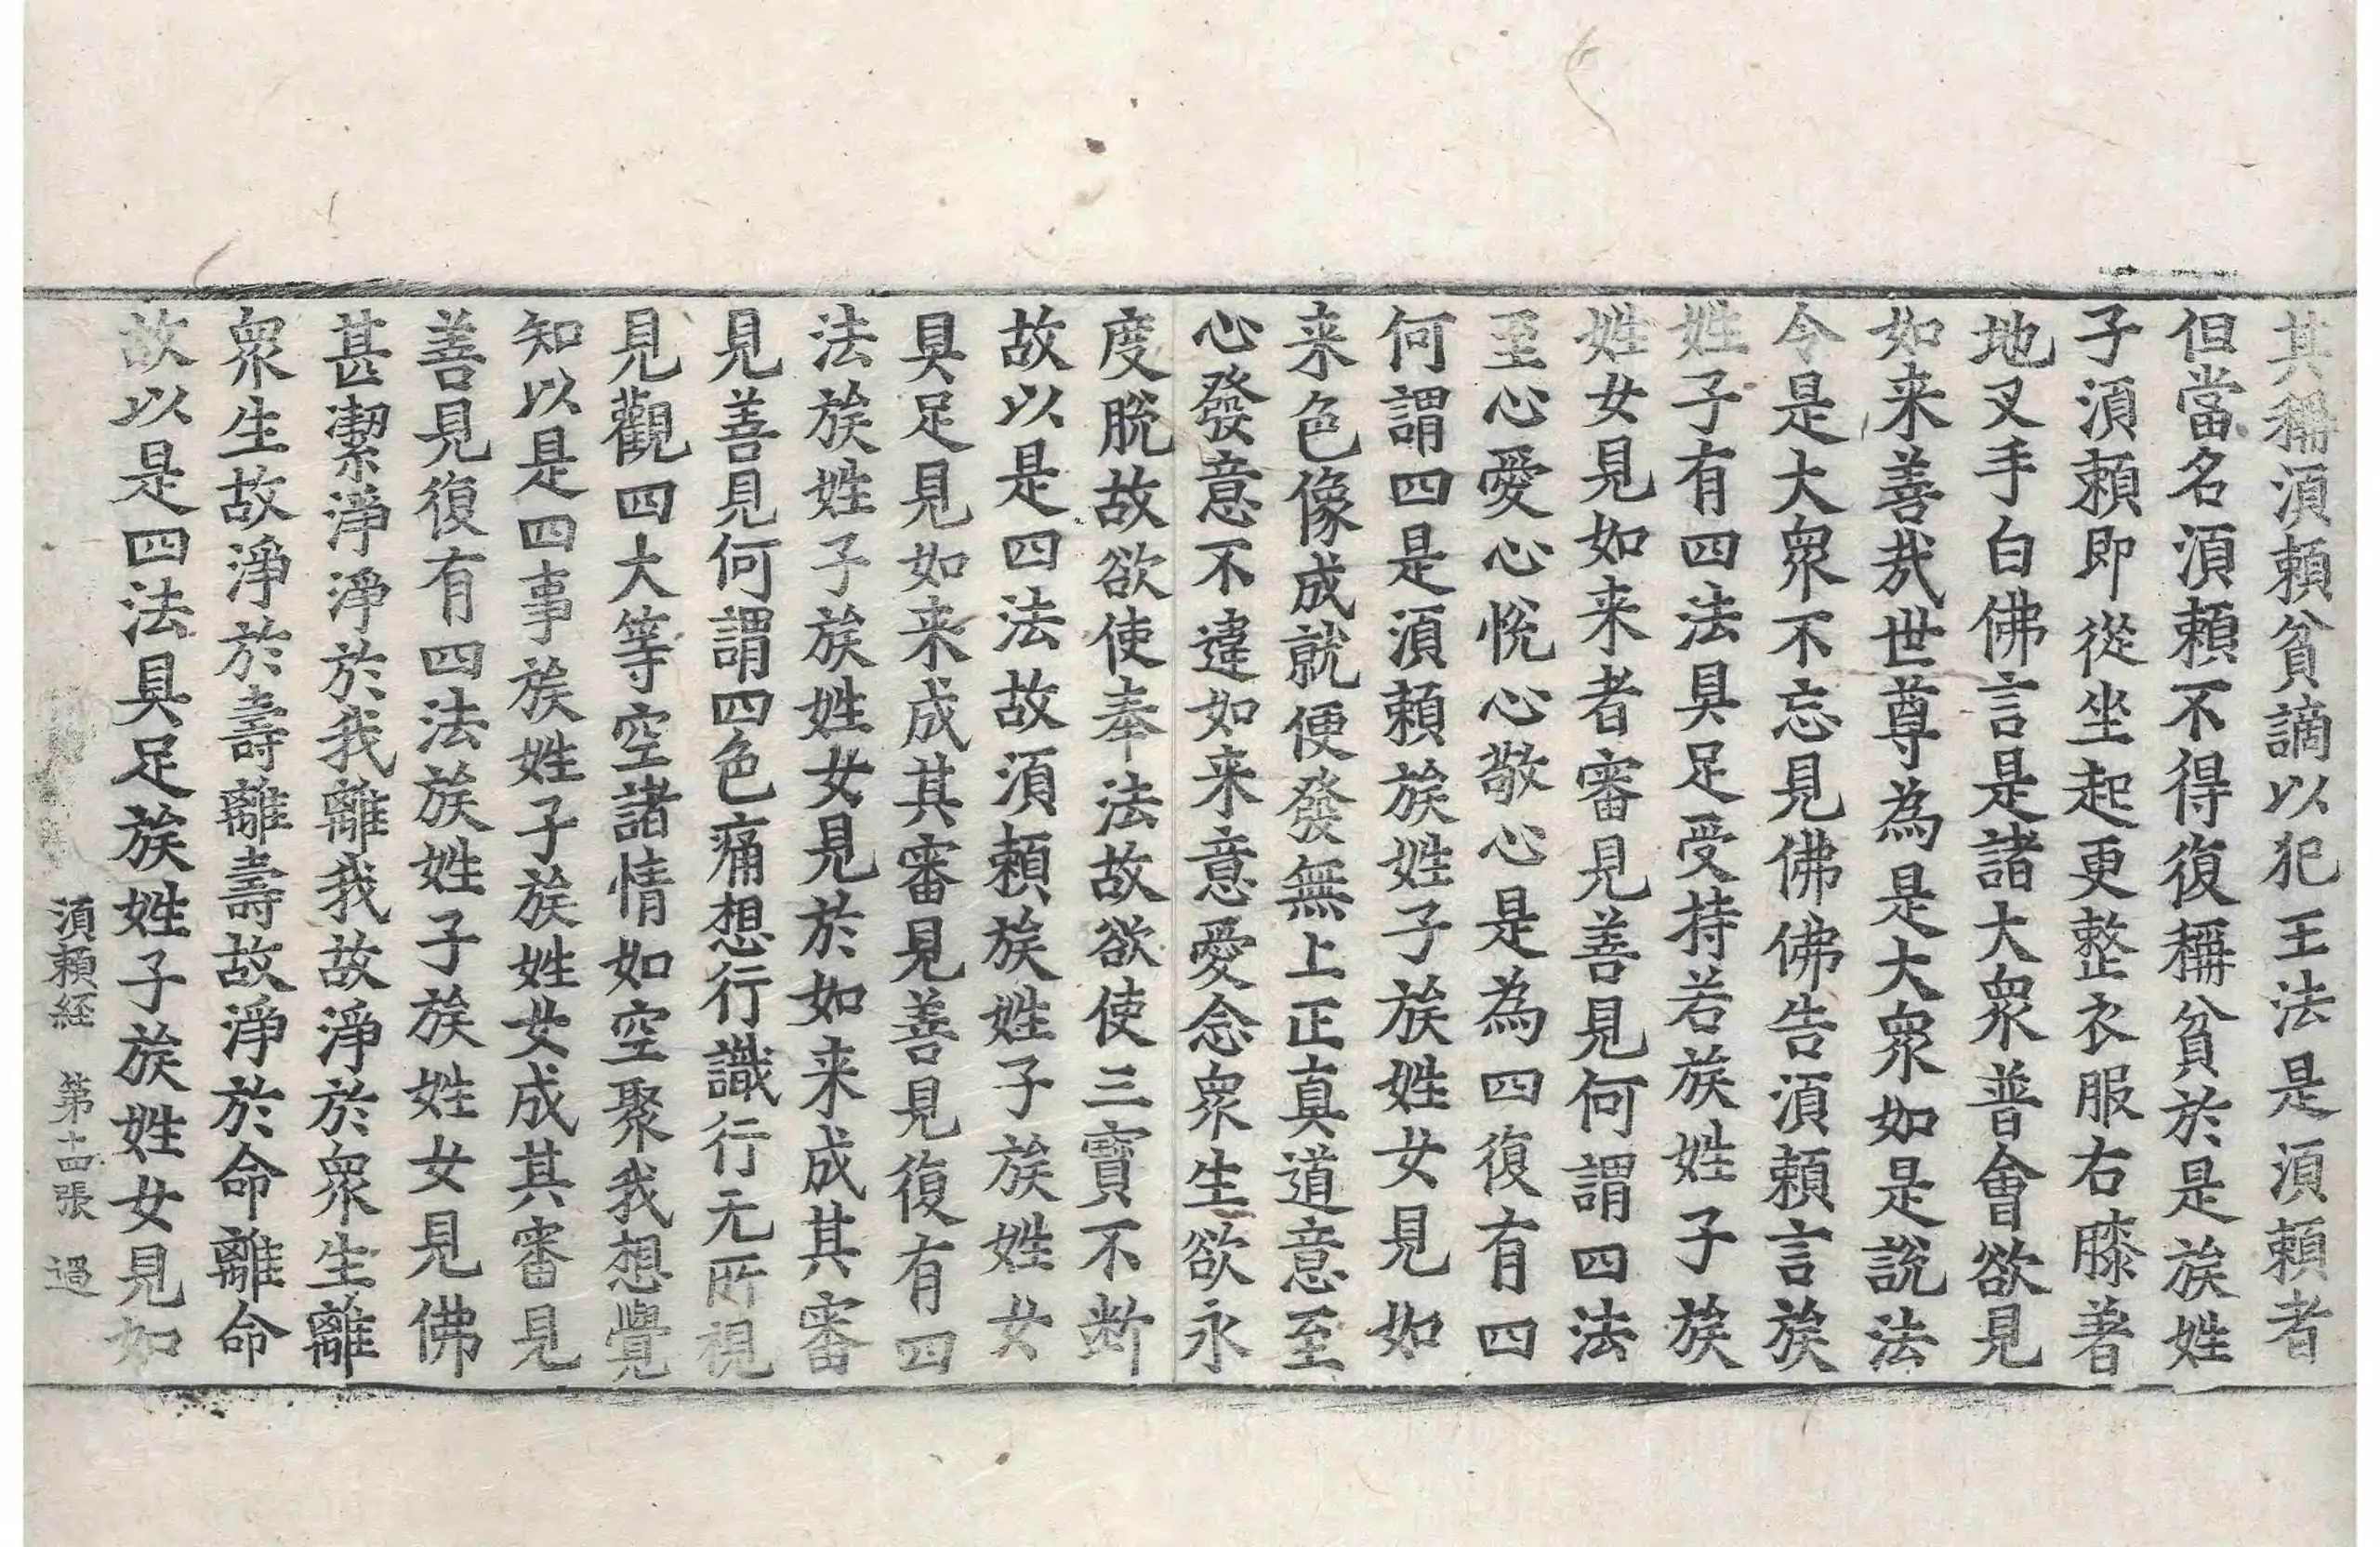 其稱湏頼貧謫以犯王法是湏頼者
但當名湏頼不得復稱貧於是族姓
子湏頼即從坐起更整衣服右膝著
地叉手白佛言是諸大衆普會欲見
如来善㢤世尊為是大衆如是說法
令是大衆不忘見佛佛告湏頼言族
姓子有四法具足受持若族姓子族
姓女見如来者審見善見何謂四法
至心愛心悅心敬心是為四復有四
何謂四是湏頼族姓子族姓女見如
来色像成就便發無上正真道意至
心發意不違如来意愛念衆生欲永
度脫故欲使奉法故欲使三寶不断
故以是四法故湏頼族姓子族姓女
具足見如来成其審見善見復有四
法族姓子族姓女見於如来成其審
見善見何謂四色痛想行識行无所視
見觀四大等空諸情如空聚我想覺
知以是四事族姓子族姓女成其審見
善見復有四法族姓子族姓女見佛
甚潔淨淨於我離我故淨於衆生離
衆生故淨於壽離壽故淨於命離命
故以是四法具足族姓子族姓女見如
湏頼経 第十四張 過